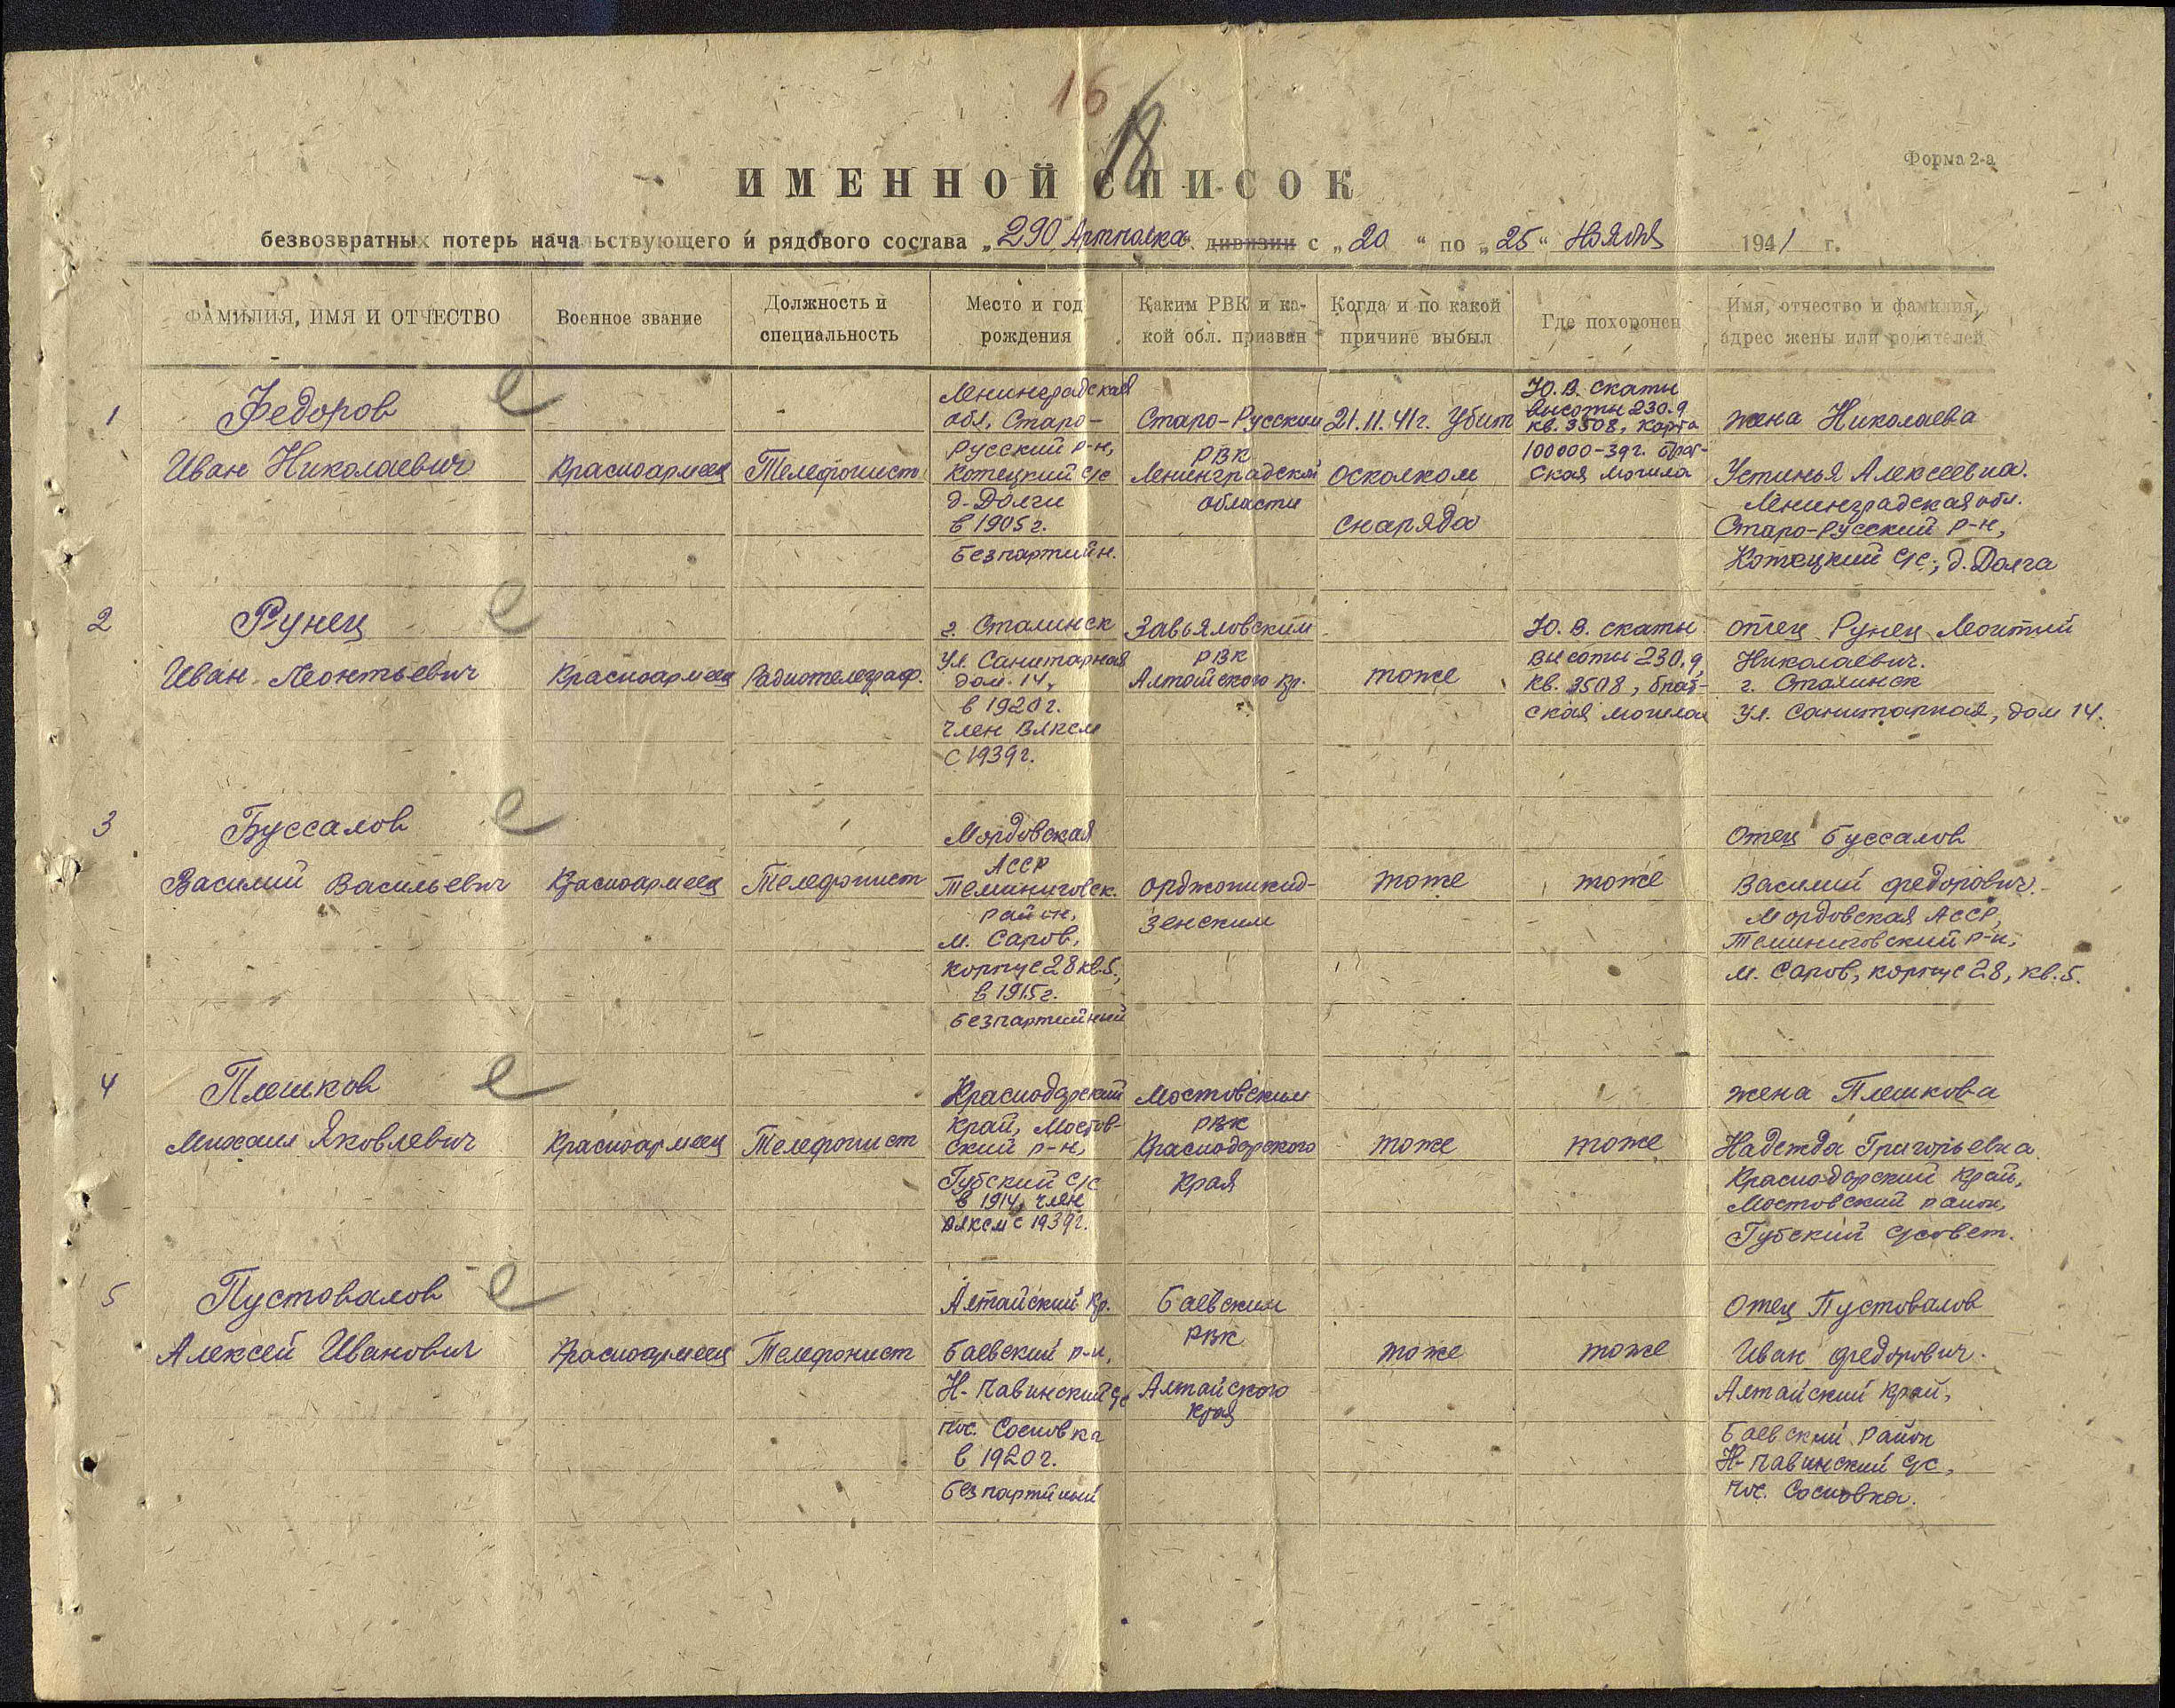 16
18
Форма 2-а
ИМЕННОЙ СПИСОК
безвозвратных потерь начальствующего и рядового состава „290 Артполка“ дивизии с „20“ по „25“ Ноября 1941 г.
ФАМИЛИЯ, ИМЯ И ОТЧЕСТВО
Военное звание
Должность и
специальность
Место и год
рождения
Каким РВК и ка-
кой обл. призван
Когда и по какой
причине выбыл
Где похоронен
Имя, отчество и фамилия,
адрес жены или родителей
1
Федоров
Иван Николаевич
Красноармеец
Телефонист
Ленинградская
обл, Старо-
Русский р-н,
Котецкий с/с
д. Долги
в 1905 г.
безпартийн.
Старо-Русским
РВК
Ленинградской
области
21.11.41г. Убит
осколком
снаряда
Ю.В. скаты
высоты 230.9
кв. 3508, карта
100000-39г. брат-
ская могила
жена Николаева
Устинья Алексеевна.
Ленинградская обл.
Старо-Русский р-н,
Котецкий с/с, д. Долга
2
Рунец
Иван Леонтьевич
Красноармеец
Радиотелеграф.
г. Сталинск
ул. Санитарная
дом. 14,
в 1920 г.
член ВЛКСМ
с 1939г.
Завьяловским
РВК
Алтайского кр.
тоже
Ю.В. скаты
высоты 230,9,
кв. 3508, брат-
ская могила
отец Рунец Леонтий
Николаевич.
г. Сталинск
ул. Санитарная, дом 14.
3
Буссалов
Василий Васильевич
Красноармеец
Телефонист
Мордовская
АССР
Темниговск.
район,
м. Саров,
корпус 28 кв.5.,
в 1915г.
безпартийный
Орджоникид-
зенским
тоже
тоже
Отец Буссалов
Василий Федорович.
Мордовская АССР,
Темниговский р-н,
м. Саров, корпус 28, кв.5.
4
Плешков
Михаил Яковлевич
Красноармеец
Телефонист
Краснодарский
край, Мостов-
ский р-н,
Губский с/с
в 1914, член
ВЛКСМ с 1939г.
Мостовским
РВК
Краснодарского
края
тоже
тоже
жена Плешкова
Надежда Григорьевна.
Краснодарский край,
Мостовский район,
Губский с/совет.
5
Пустовалов
Алексей Иванович
Красноармеец
Телефонист
Алтайский кр.
Баевский р-н,
Н-Чавинский с/с
пос. Сосновка
в 1920г.
безпартийный
Баевским
РВК
Алтайского
края
тоже
тоже
Отец Пустовалов
Иван Федорович.
Алтайский край,
Баевский район
Н-Чавинский с/с,
пос. Сосновка.